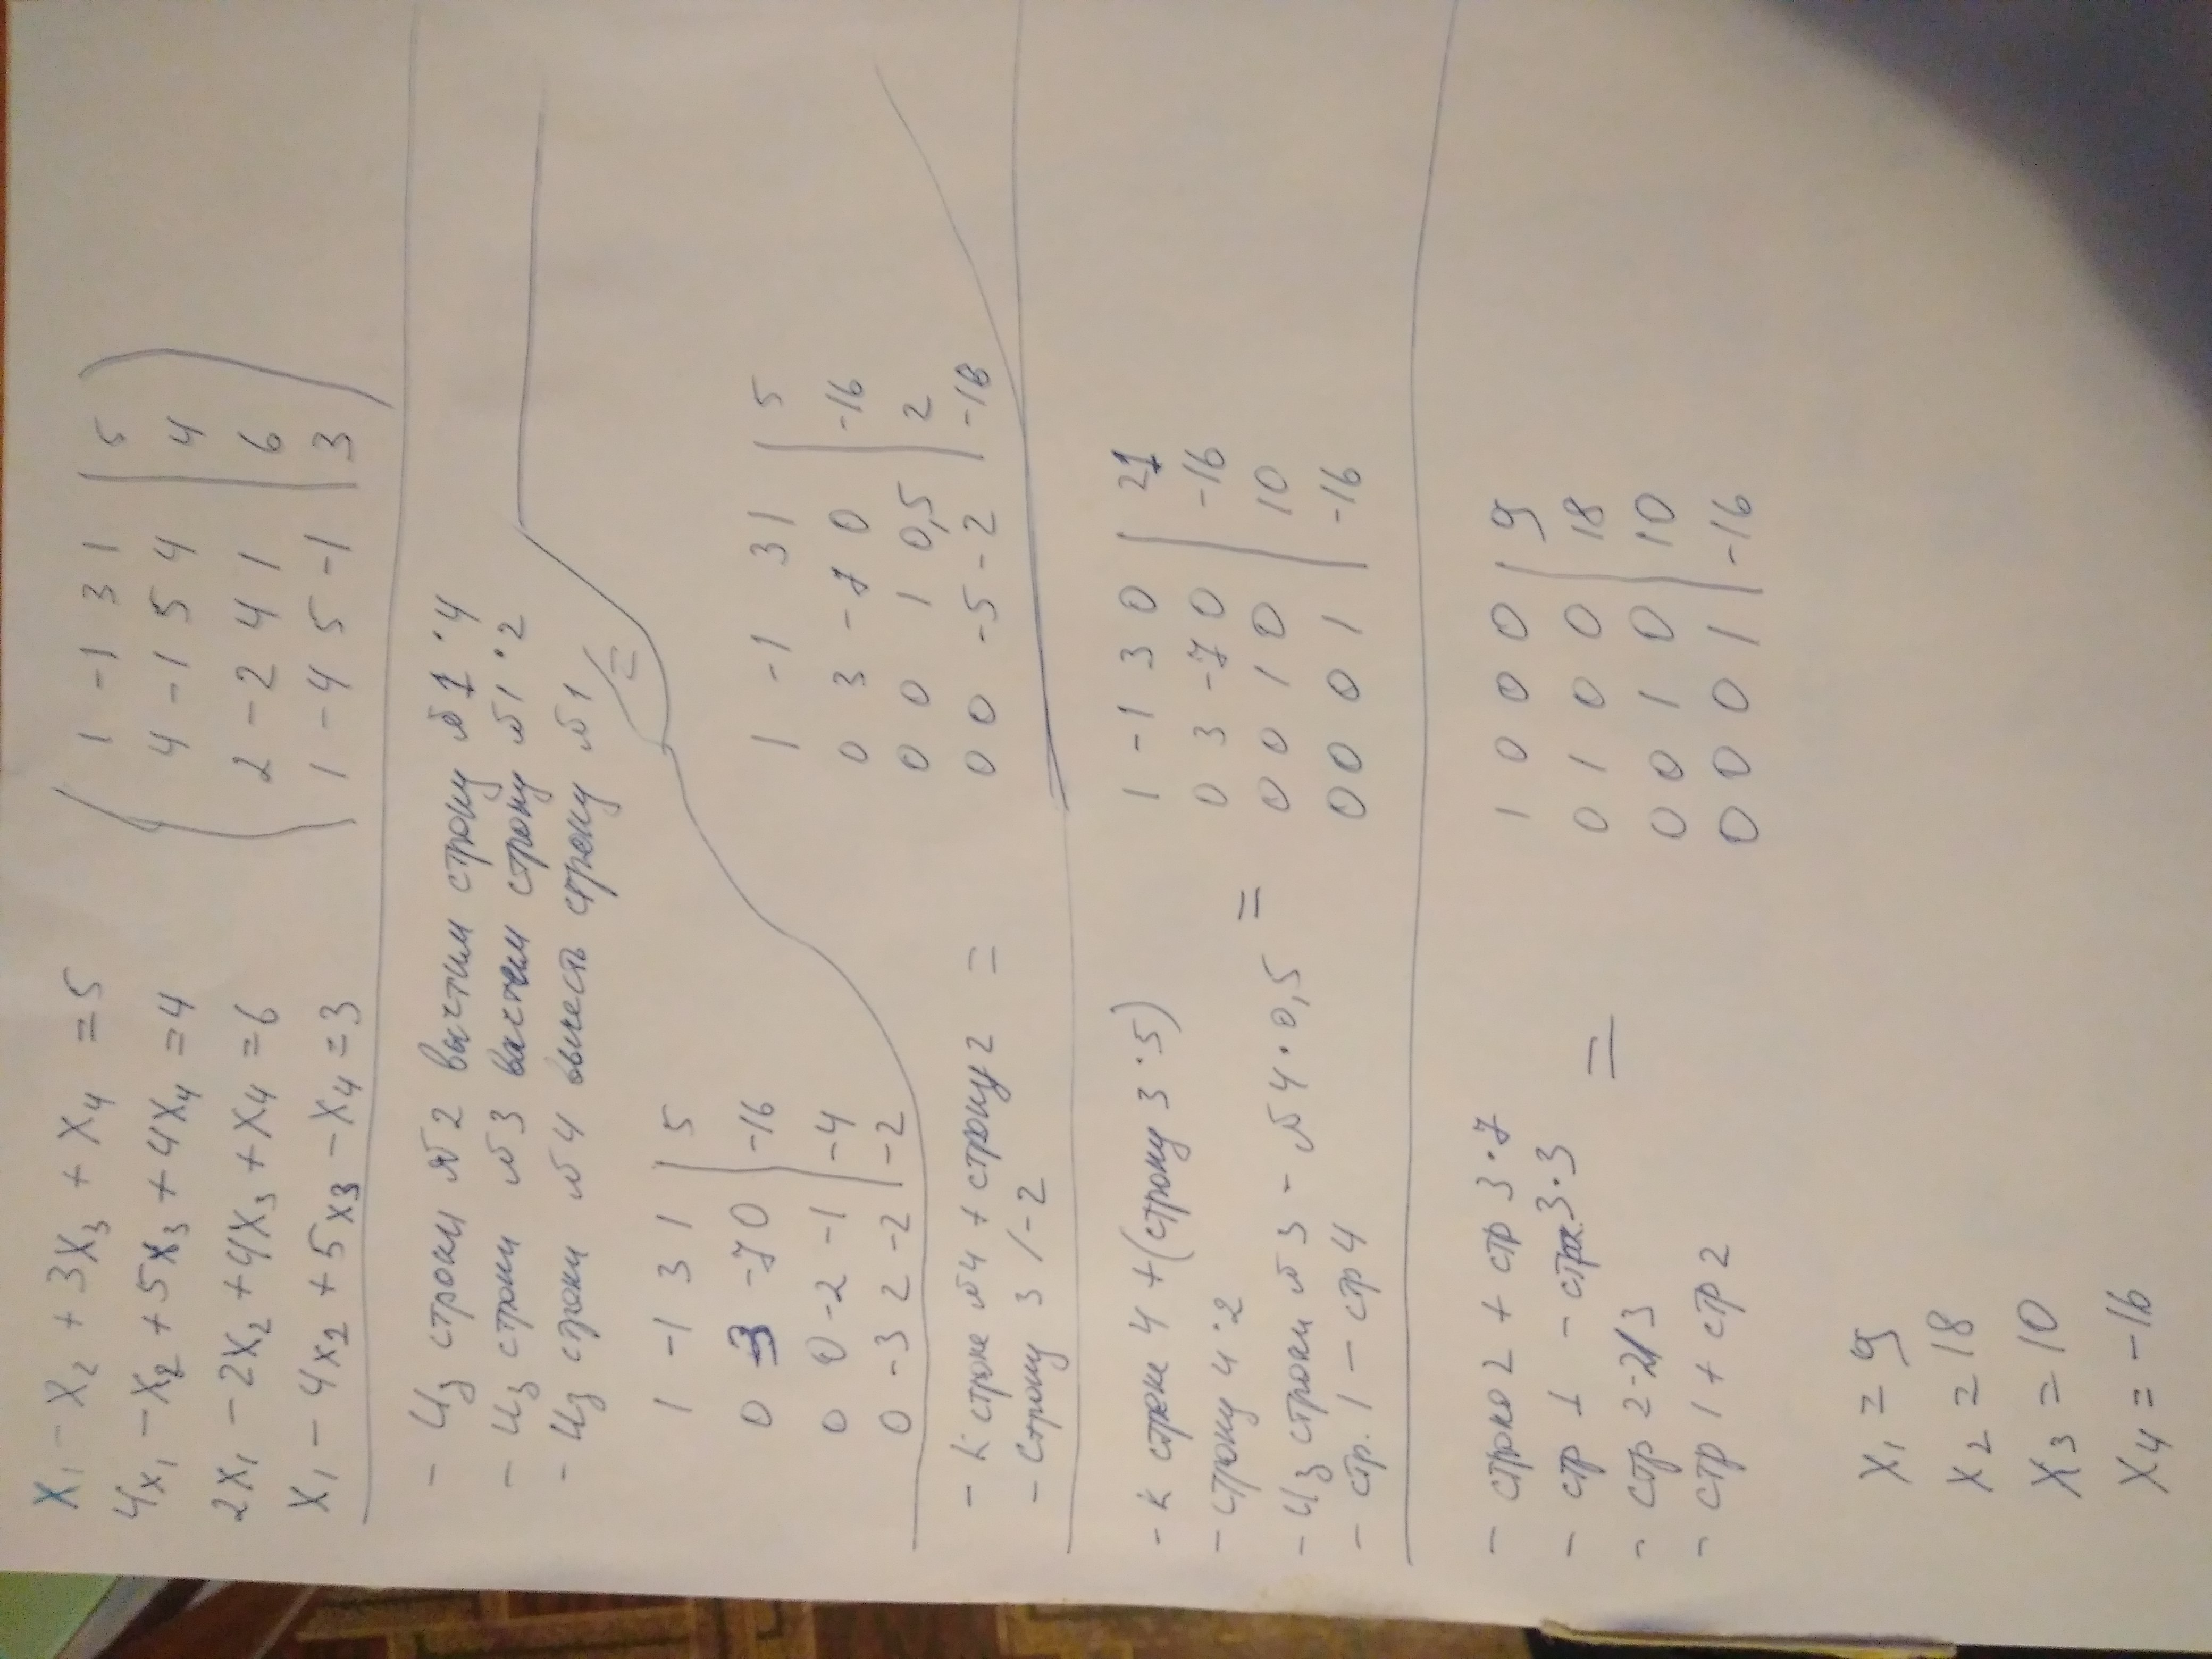 x₁ - x₂ + 3x₃ + x₄ = 5
4x₁ - x₂ + 5x₃ + 4x₄ = 4
2x₁ - 2x₂ + 4x₃ + x₄ = 6
x₁ - 4x₂ + 5x₃ - x₄ = 3
1 -1 3 1 | 5
4 -1 5 4 | 4
2 -2 4 1 | 6
1 -4 5 -1 | 3
- Из строки №2 вычтим строку №1 · 4
- Из строки №3 вычтем строку №1 · 2
- Из строки №4 вычесть строку №1
=
1 -1 3 1 | 5
0 3 -7 0 | -16
0 0 -2 -1 | -4
0 -3 2 -2 | -2
- К строке №4 + строку 2 =
- Строку 3 / -2
1 -1 3 1 | 5
0 3 -7 0 | -16
0 0 1 0,5 | 2
0 0 -5 -2 | -18
- К строке 4 + (строку 3 · 5)
- строку 4 · 2
- Из строки №3 - №4 · 0,5
- стр. 1 - стр 4
=
1 -1 3 0 | 21
0 3 -7 0 | -16
0 0 1 0 | 10
0 0 0 1 | -16
- строка 2 + стр 3 · 7
- стр 1 - стр 3 · 3
- стр 2 / 3
- стр 1 + стр 2
=
1 0 0 0 | 9
0 1 0 0 | 18
0 0 1 0 | 10
0 0 0 1 | -16
x₁ = 9
x₂ = 18
x₃ = 10
x₄ = -16